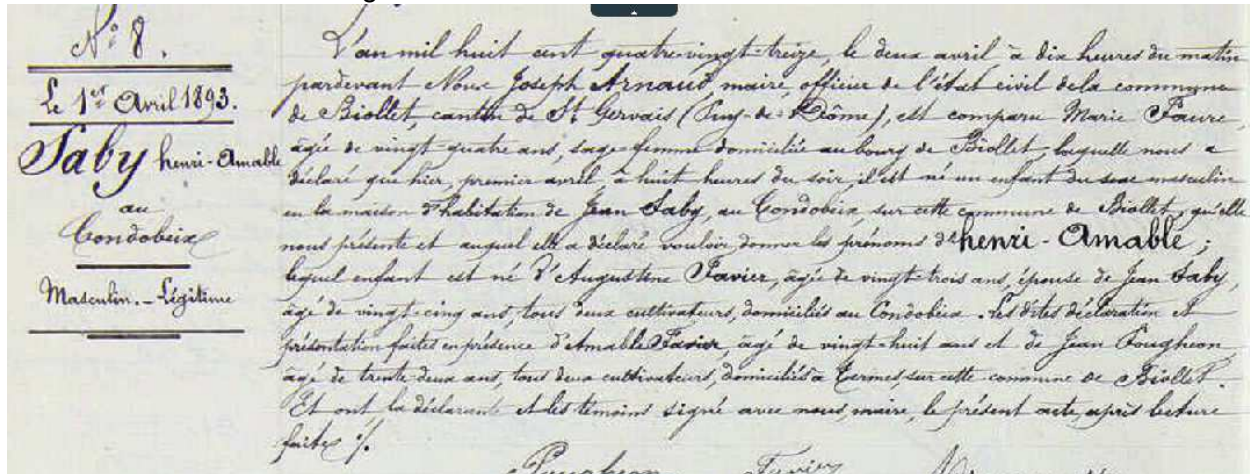 N° 8.
Le 1er Avril 1893.
Saby henri-Amable
au
Condobeix
Masculin. - Légitime
L'an mil huit cent quatre-vingt-treize, le deux avril à dix heures du matin
pardevant Nous Joseph Arnaud, maire, officier de l'état civil de la commune
de Biollet, canton de St Gervais (Puy-de-Dôme), est comparu Marie Faure,
âgée de vingt-quatre ans, sage-femme domiciliée au bourg de Biollet, laquelle nous a
déclaré que hier, premier avril, à huit heures du soir, il est né un enfant du sexe masculin
en la maison d'habitation de Jean Saby, au Condobeix, sur cette commune de Biollet, qu'elle
nous présente et auquel elle a déclaré vouloir donner les prénoms de henri - Amable ;
lequel enfant est né d'Augustine Favier, âgée de vingt-trois ans, épouse de Jean Saby,
âgé de vingt-cinq ans, tous deux cultivateurs, domiciliés au Condobeix. Les dites déclaration et
présentation faites en présence d'Amable Favier, âgé de vingt-huit ans et de Jean Pougheon
âgé de trente deux ans, tous deux cultivateurs, domiciliés à Termes, sur cette commune de Biollet.
Et ont la déclarante et les témoins signé avec nous, maire, le présent acte, après lecture
faite ./.
Pougheon Favier